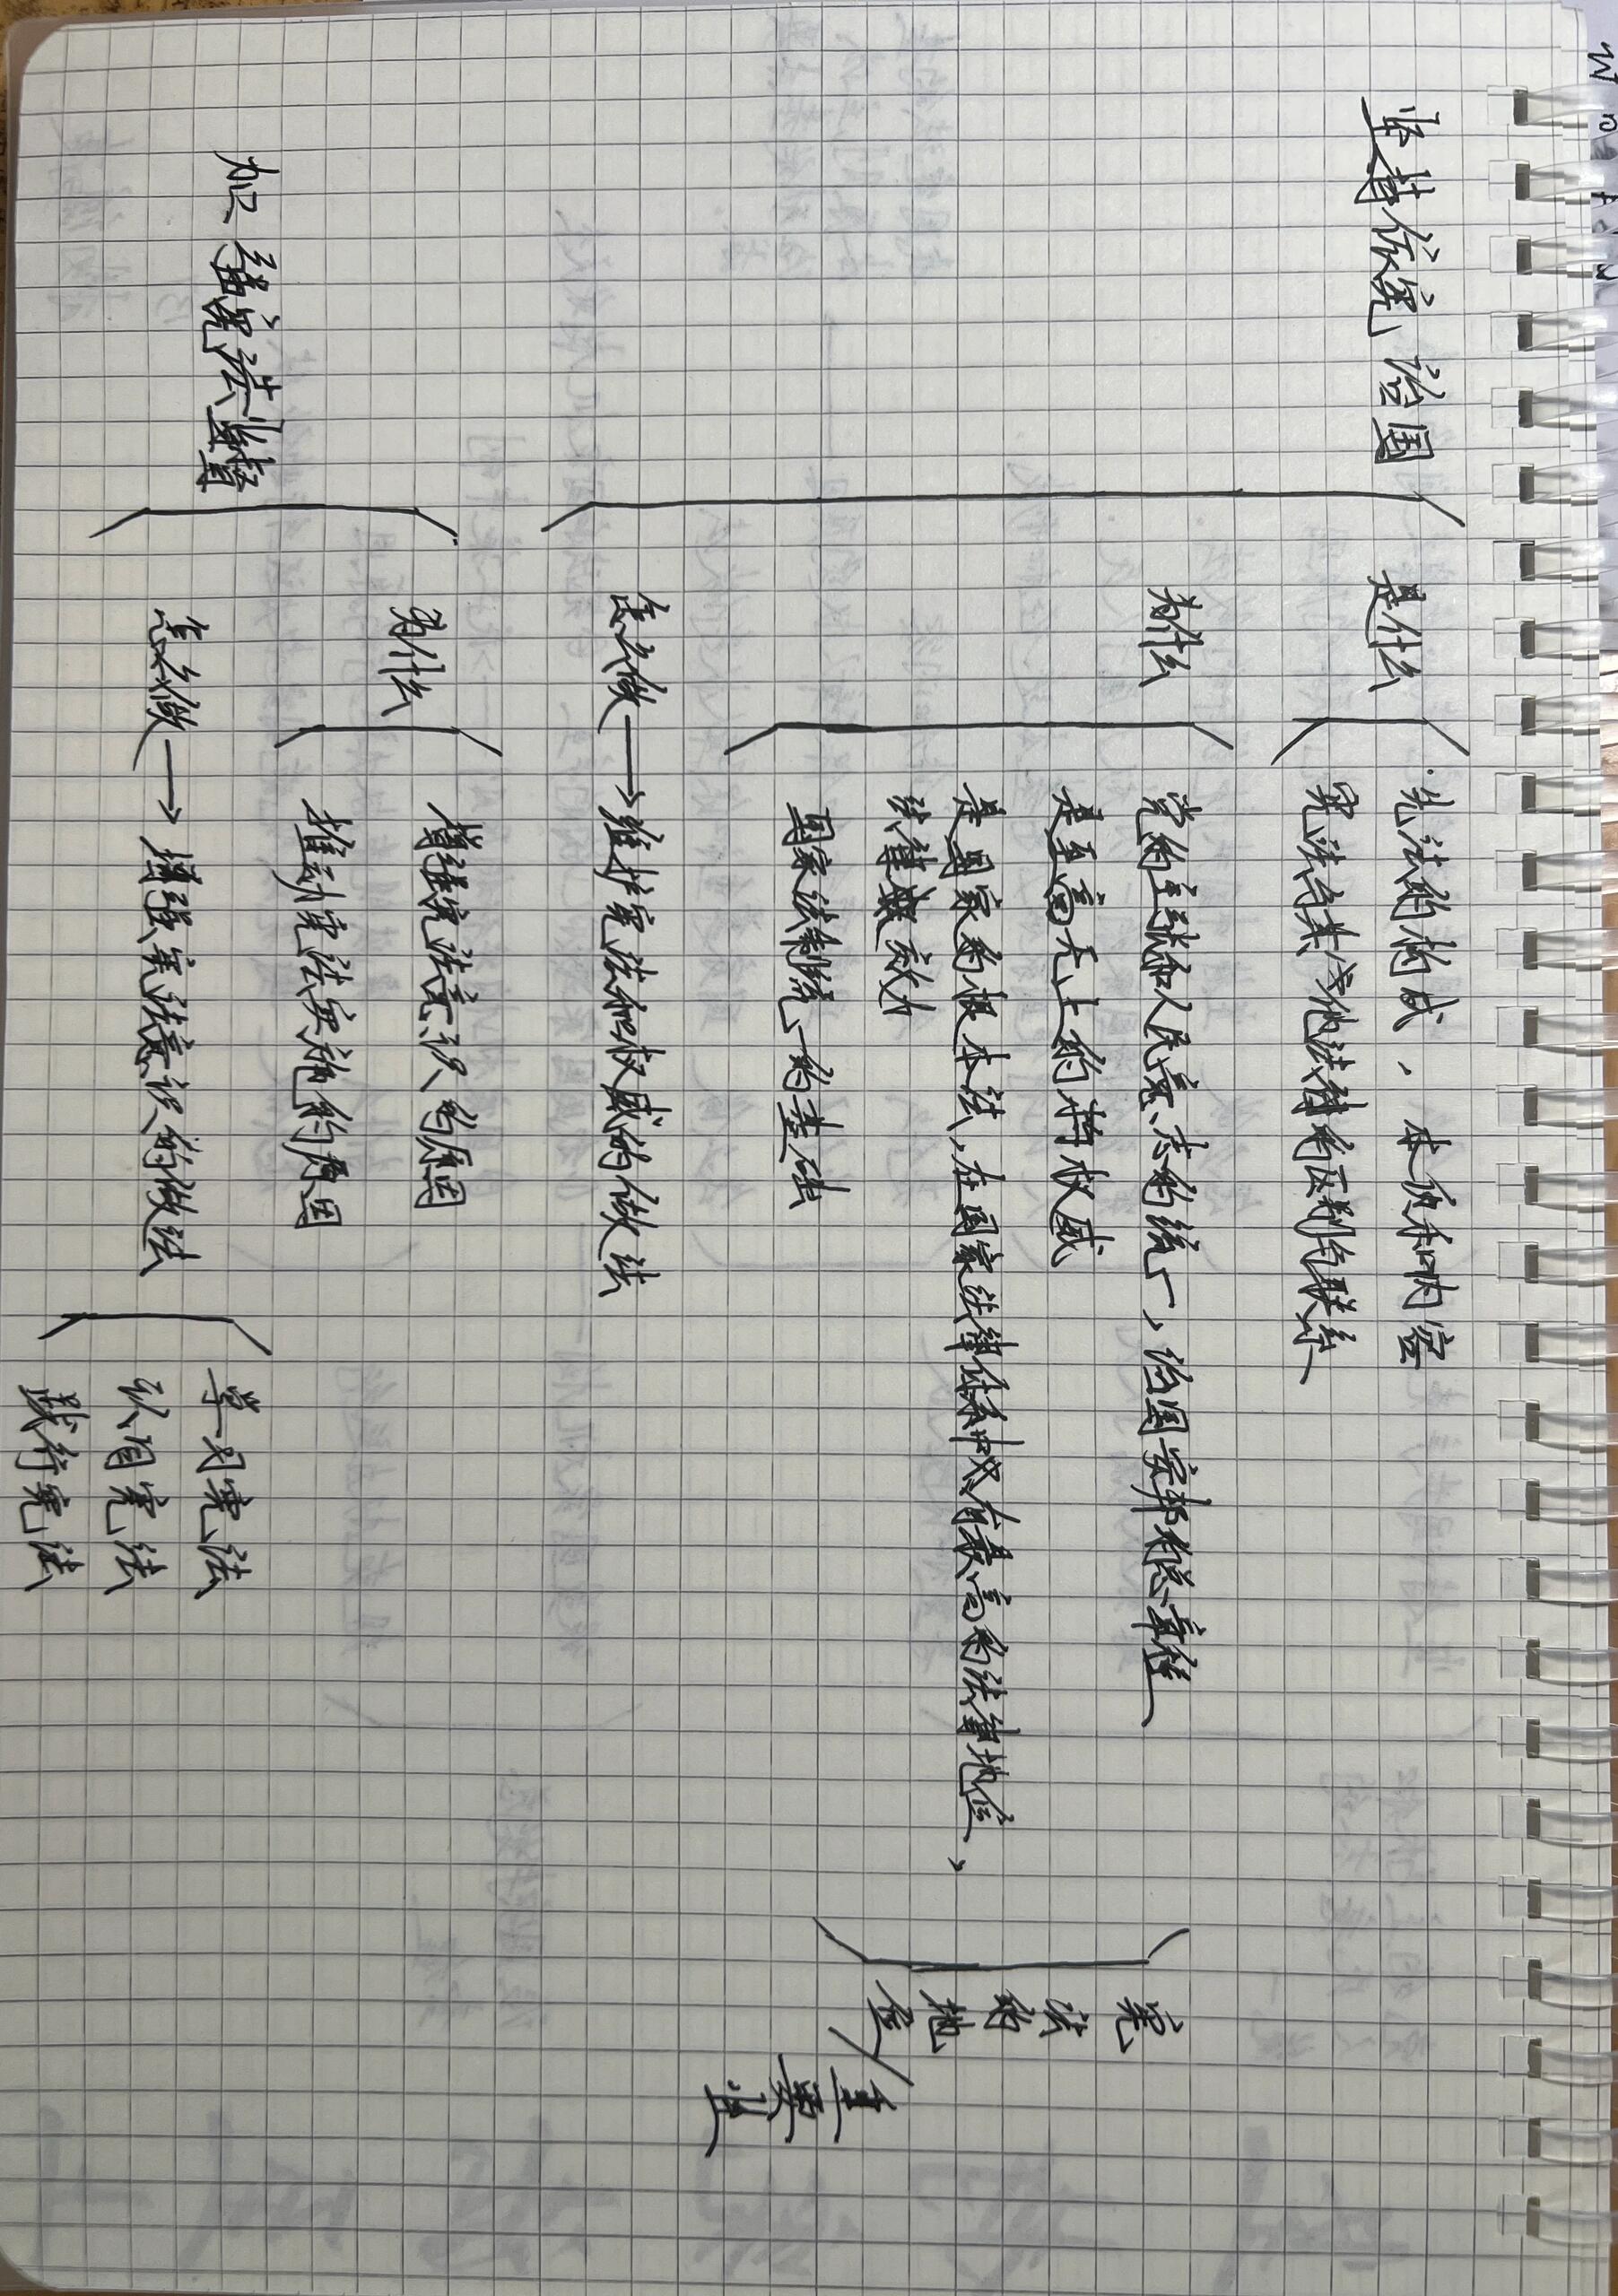 坚持依宪治国
是什么
宪法的构成、本质和内容
宪法与其他法律的区别与联系
为什么
党的主张和人民意志的统一，治国安邦的总章程
是至高无上的权威
是国家的根本法，在国家法律体系中具有最高的法律地位、
法律效力
国家法制统一的基础
宪法的地位/
重要性
怎么做→维护宪法权威的做法
加强宪法监督
为什么
增强宪法意识的原因
推动宪法实施的原因
怎么做→增强宪法意识的做法
学习宪法
认同宪法
践行宪法